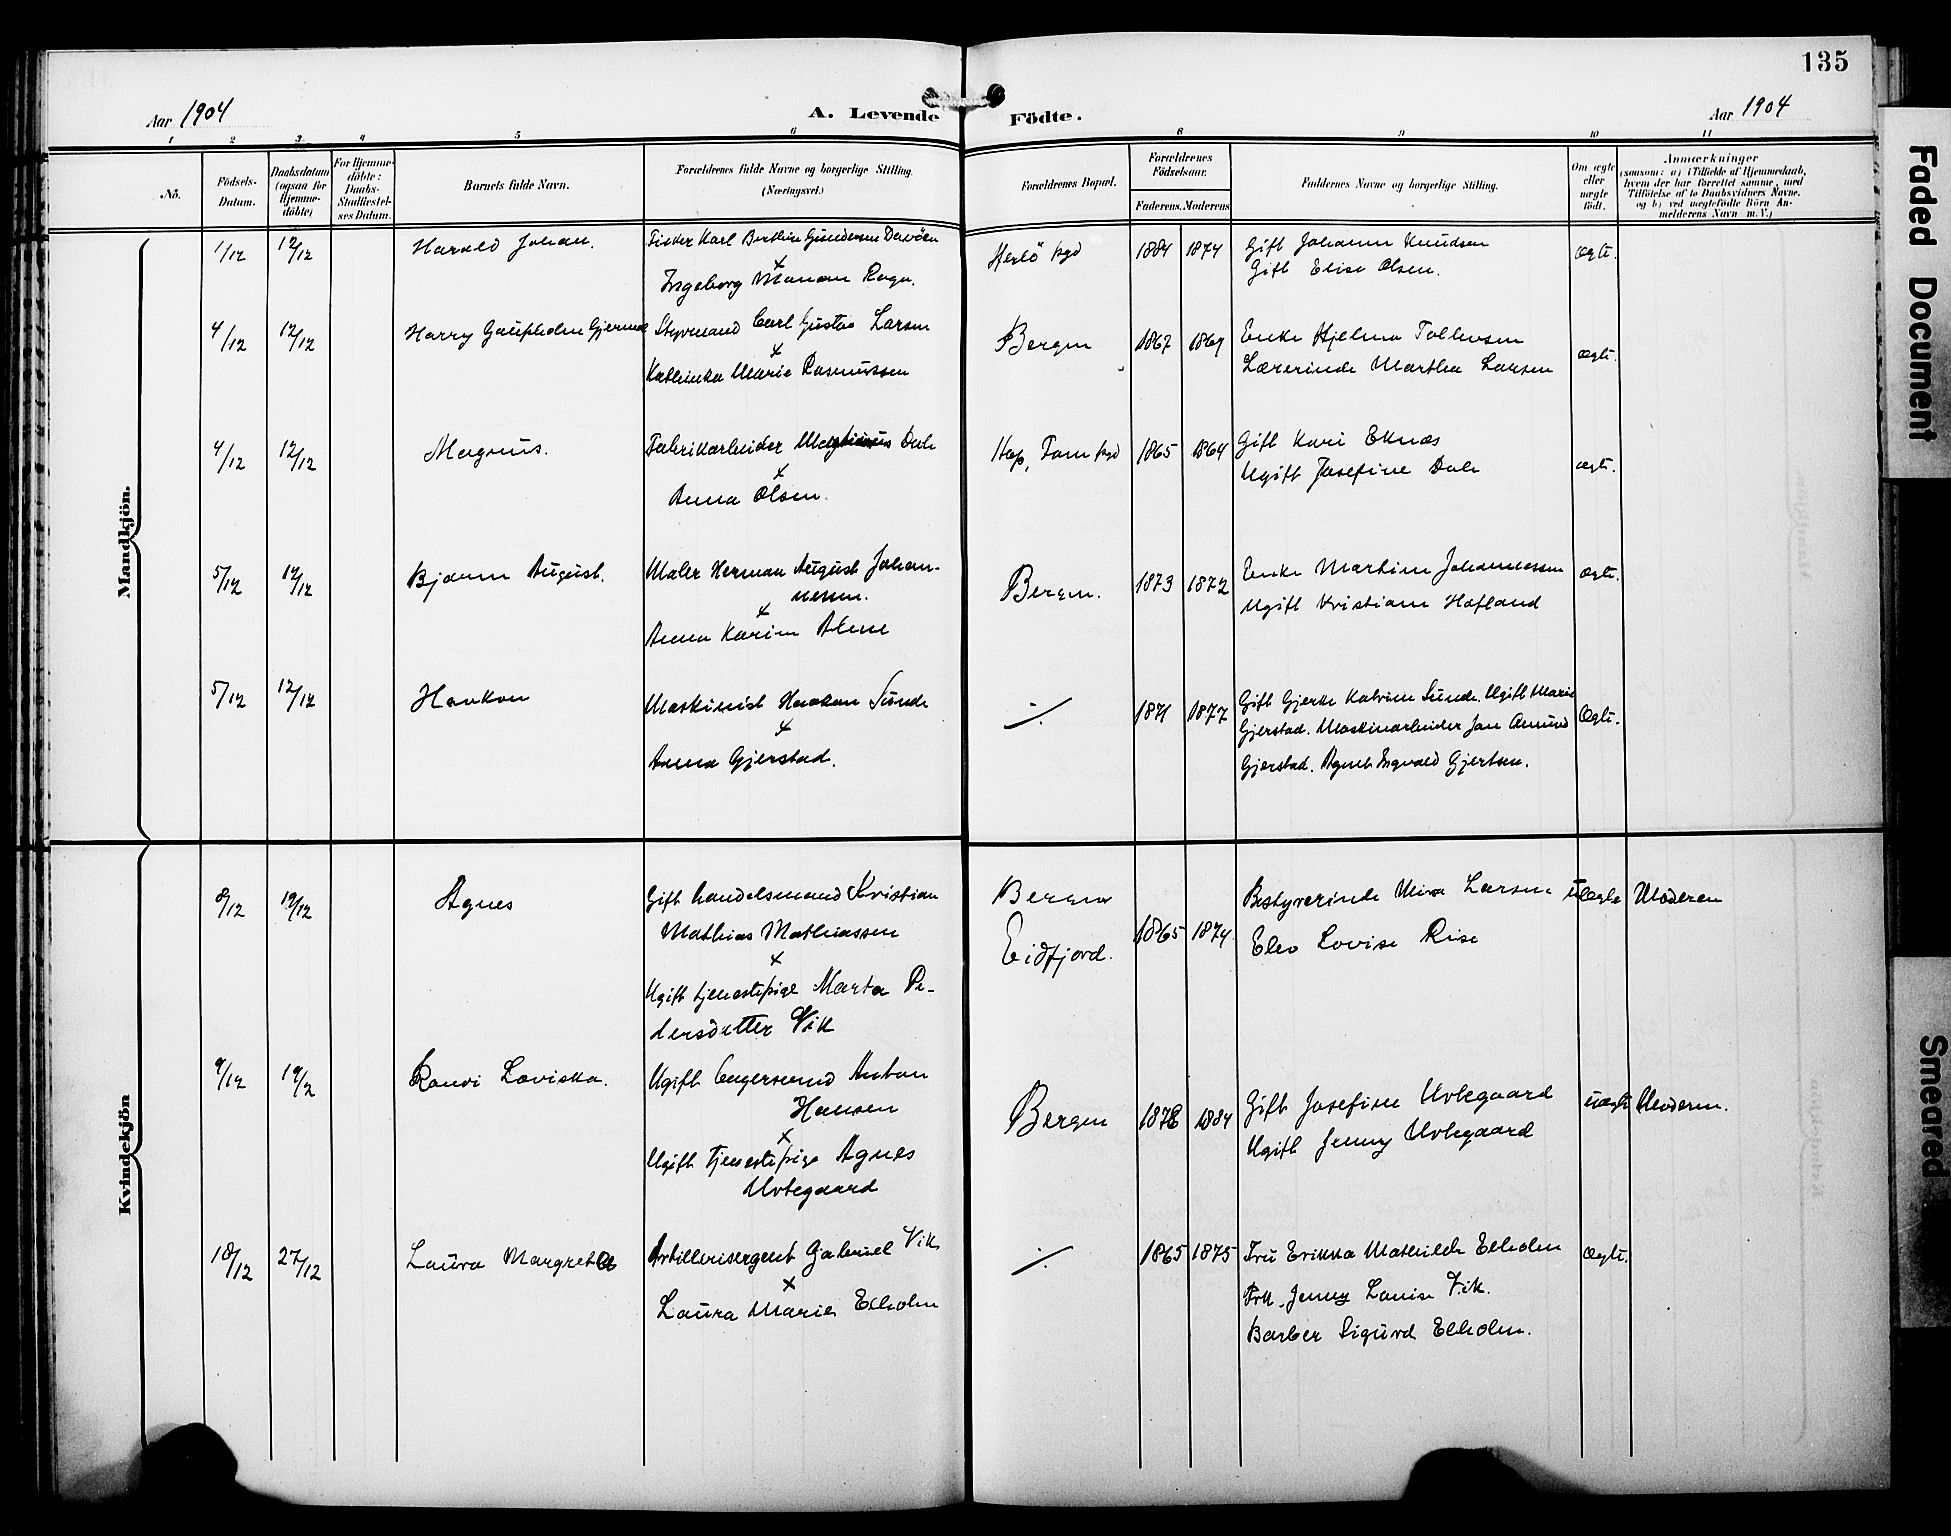 135
Aar 1904
A. Levende Födte.
Aar 1904
1 2 3 4 5 6 8 9 10 11
No.
Födsels-Datum.
Daabsdatum (ogsaa for Hjemme-döbte)
For Hjemme-döbte: Daabs-Stadfæstel-ses Datum.
Barnets fulde Navn.
Forældrenes fulde Navne og borgerlige Stilling. (Næringsvei.)
Forældrenes Bopæl.
Forældrenes Födselsaar.
Faderens. Moderens
Faddernes Navne og borgerlige Stilling.
Om ægte eller uægte födt.
Anmærkninger
(saasom: a) i Tilfælde af Hjemmedaab, hvem der har forrettet samme, med Tilföielse af to Daabsvidners Navne, og b) ved uægtefödte Börn An-melderens Navn m. V.)
Mandkjön.
1/12 12/12 Harald Johan.
Fisker Karl Berthin Gundersen
x
Ingeborg
Herlö pgd 1884 1874
Gift Johanne Knudsen
Gift Elise Olsen.
ægte.
4/12 12/12 Harry
Styrmand Carl Gustav Larsen
x
Kathinka Marie Rasmussen
Bergen 1867 1869
Enke Hjelma Tollevsen
Lærerinde Martha Larsen
ægte.
4/12 12/12 Magnus.
Fabrikarbeider Dale
x
Anna Olsen.
1865 1864
Gift Kari Eknæs
Ugift Josefine Dale
ægte.
5/12 12/12 Bjarne August.
Maler Herman August Johan-
nesen.
x
Anna Karine
Bergen. 1873 1872
Enke Martine Johannessen
Ugift Kristiane Hafland
ægte.
5/12 12/12 Haakon
Maskinist Haakon Sunde
x
Anna Gjerstad.
./. 1871 1877
Gift Gjerke Katrine Sunde. Ugift Marie
Gjerstad. Maskinarbeider Jan Amund
Gjerstad. Agent Ingvald Gjertsen.
Ægte.
Kvindekjön
8/12 19/12 Agnes
Gift handelsmand Kristian
Mathias Mathiassen
x
Ugift tjenestepige Marta Pe-
dersdatter Vik
Bergen
Eidfjord.
1865 1874
Bestyrerinde Mina Larsen
Elev Lovise Rise
uægte Moderen
9/12 19/2 Randi Loviska.
Ugift Anton
Hansen
x
Ugift tjenestepige Agnes
Urtegaard
Bergen 1878 1884
Gift Josefine Urtegaard
Ugift Jenny Urtegaard
uægte Moderen.
18/12 27/12 Laura Margretha
Artillerisergent Gabriel Vik
x
Laura Marie Ekholm
./. 1865 1875
Fru Erikka Mathilde Ekholm
Frk. Jenny Louise Vik.
Barber Sigurd Ekholm.
ægte.
Faded Document
Smeared